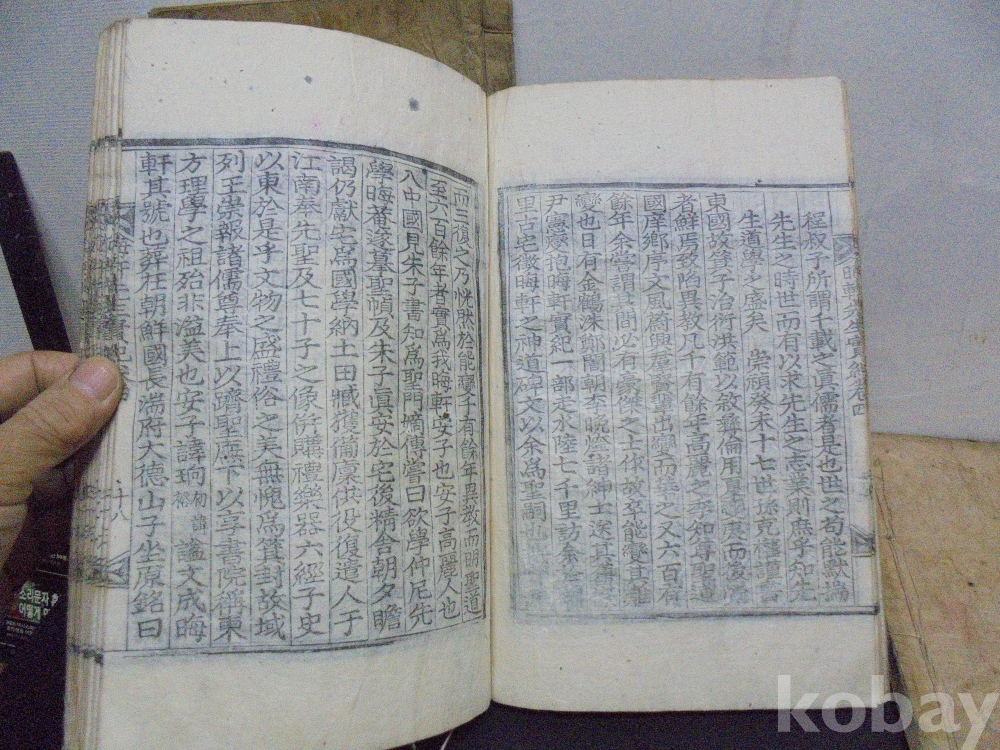 程叔子所謂千載之眞儒者是也世之苟能默誦
先生之時世而有以求先生之志業則庶乎知先
生道學之盛矣 崇禎癸未十七世孫克權謹
東國故箕子治衍洪範以敘彝倫用夏
者鮮焉致陷異教凡千有餘年高麗之季知尊聖道
國庠鄉序文風蔚興群賢疊出變而華之又六百有
餘年余嘗謂其間必有豪傑之士作故卒能變其難
變也日有金鶴洙鄭闇朝李晩燮諸紳士送其
尹憲愨抱晦軒實紀一部走水陸七千里訪余
里古宅徵晦軒之神道碑文以余爲聖嗣
而三復之乃恍然於能變千有餘年異教而明聖道
至六百餘年者實爲我晦軒安子也安子高麗人也
入中國見朱子書知爲聖門嫡傳嘗曰欲學仲尼先
學晦菴遂摹聖幀及朱子眞安於宅後精舍朝夕瞻
謁仍獻宅爲國學納土田臧獲備廩供役復遣人于
江南奉先聖及七十子之像倂購禮樂器六經子史
以東於是乎文物之盛禮俗之美無愧爲箕封故域
列王崇報諸儒尊奉上以躋聖廡下以享書院稱東
方理學之祖殆非溢美也安子諱珦初諱裕謚文成晦
軒其號也葬在朝鮮國長湍府大德山子坐原銘曰
十八
소리문자
어떻게
kobay